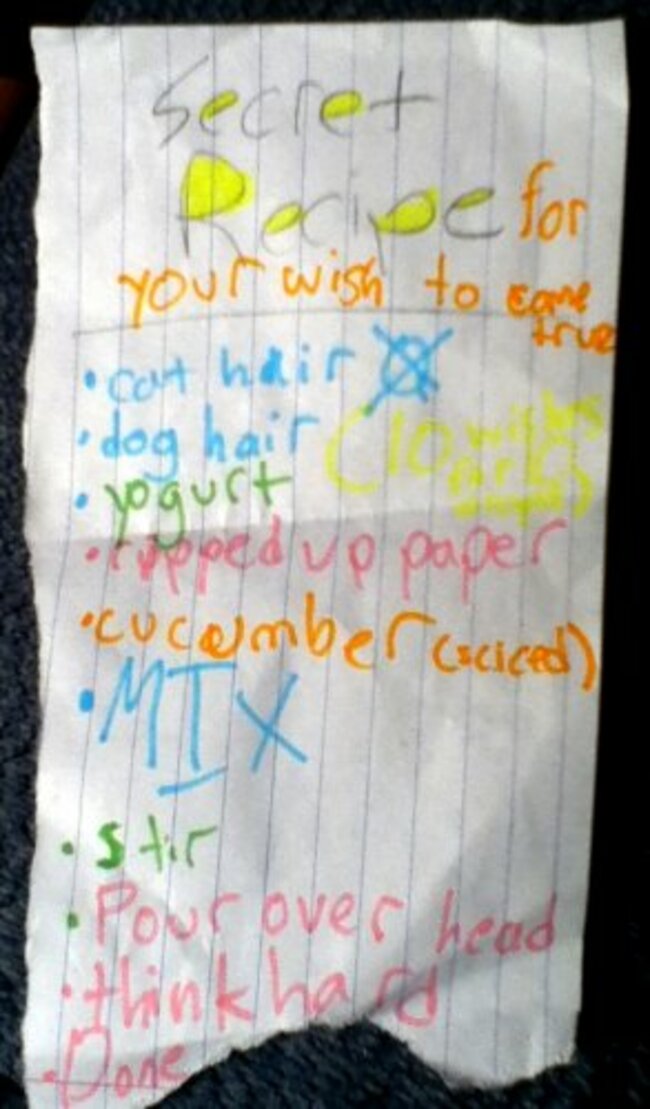 Secret
Recipe for
your wish to come
true
• cat hair
• dog hair (10 wishes
• yogurt
• ripped up paper
• cucumber (sciced)
• MIX
• stir
• Pour over head
• think hard
• Done